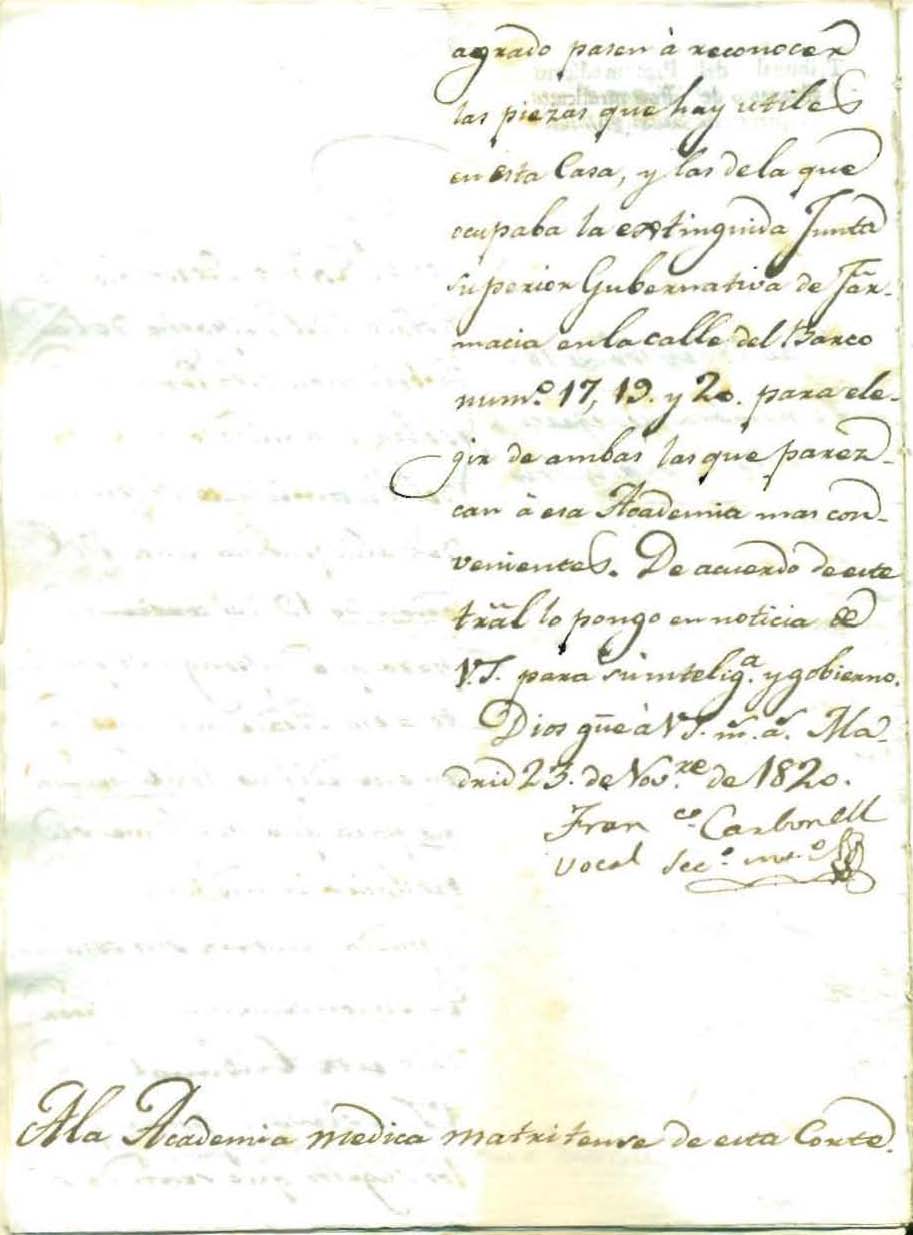 agrado pasen à reconocer
las piezas que hay utiles
en esta Casa, y las de la que
ocupaba la extinguida Junta
superior Gubernativa de Far-
macia en la calle del Barco
num.º 17, 19. y 20. para ele-
gir de ambas las que parez-
can à esa Academia mas con-
venientes. De acuerdo de este
trãl lo pongo en noticia de
V.S. para su intelig.ª y gobierno.
Dios gũe à V.S. m.ˢ a.ˢ Ma-
drid 23. de Nov.ʳᵉ de 1820.
Fran.ᶜᵒ Carbonell
Vocal Sec.º int.º
A la Academia medica matritense de esta Corte.